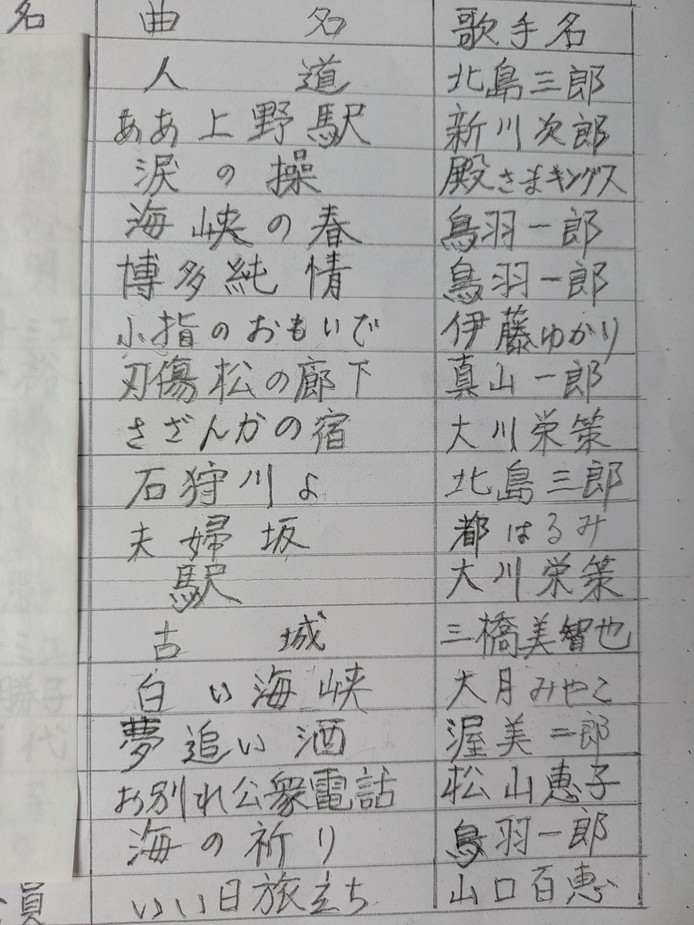 名 曲名 歌手名
人道 北島三郎
ああ上野駅 新川次郎
涙の操 殿さまキングス
海峡の春 鳥羽一郎
博多純情 鳥羽一郎
小指のおもいで 伊藤ゆかり
刃傷松の廊下 真山一郎
さざんかの宿 大川栄策
石狩川よ 北島三郎
夫婦坂 都はるみ
駅 大川栄策
古城 三橋美智也
白い海峡 大月みやこ
夢追い酒 渥美二郎
お別れ公衆電話 松山恵子
海の祈り 鳥羽一郎
員 いい日旅立ち 山口百恵